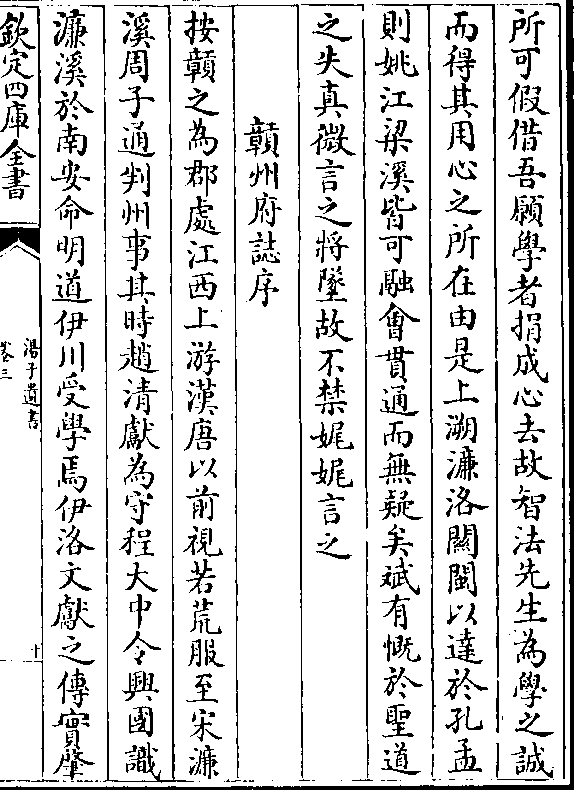 所可假借吾願學者捐成心去故智法先生為學之誠
而得其用心之所在由是上溯濂洛關閩以達於孔孟
則姚江梁溪皆可融會貫通而無疑矣斌有慨於聖道
之失真微言之將墜故不禁娓娓言之
贛州府誌序
按贛之為郡處江西上游漢唐以前視若荒服至宋濂
溪周子通判州事其時趙清獻為守程大中令興國識
濂溪於南安命明道伊川受學焉伊洛文獻之傳實肇
欽定四庫全書
湯子遺書
卷三
十